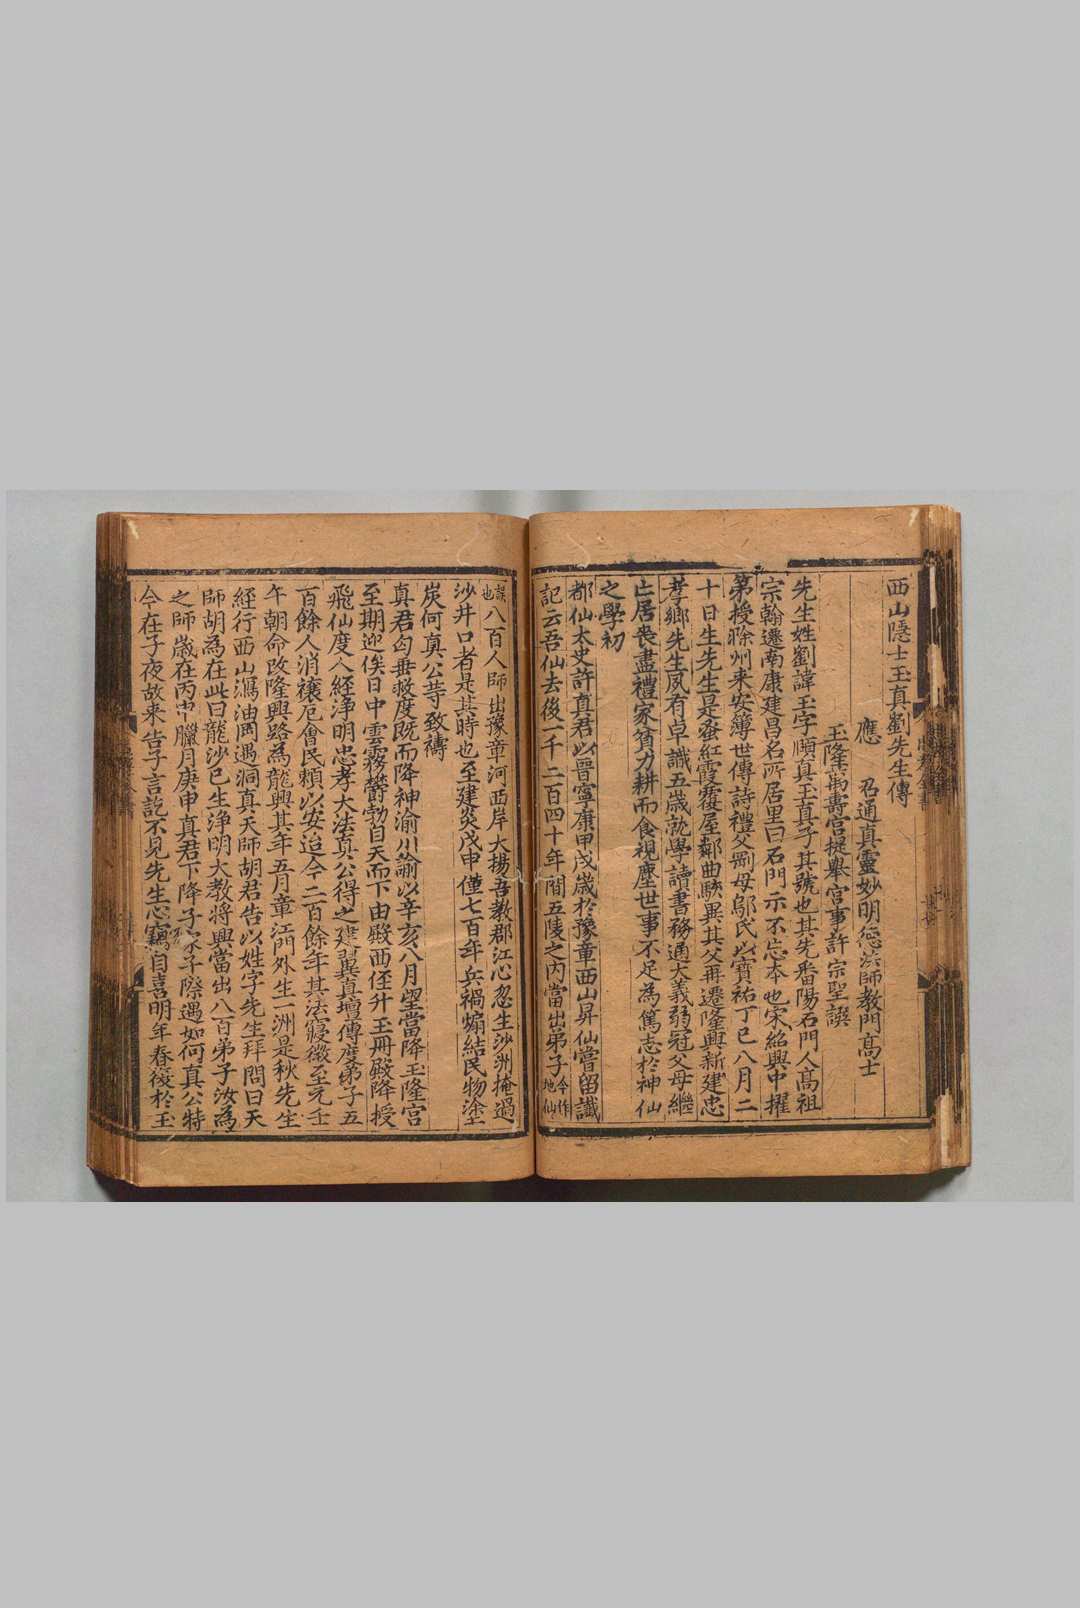 西山隱士玉真劉先生傳
應 召通真靈妙明德法師教門高士
玉隆萬壽宮提舉宮事許宗聖譔
先生姓劉諱玉字頥真玉真子其號也其先番陽石門人高祖
宗翰遷南康建昌名所居里曰石門示不忘本也宋紹興中擢
第授滁州来安簿世傳詩禮父剛母鄔氏以寳祐丁巳八月二
十日生先生是蚤紅霞覆屋鄰曲駭異其父再遷隆興新建忠
孝鄉先生夙有卓識五歲就學讀書務通大義弱冠父母繼
亡居喪盡禮家貧力耕而食視塵世事不足為篤志於神仙
之學初
都仙太史許真君以晉寧康甲戌歲於豫章西山昇仙嘗留讖
記云吾仙去後一千二百四十年間五陵之内當出弟子今作地仙
誤也八百人師出豫章河西岸大揚吾教郡江心忽生沙洲掩過
沙井口者是其時也至建炎戊申僅七百年兵禍煽結民物塗
炭何真公䓁致禱
真君匄垂救度既而降神渝川諭以辛亥八月望當降玉隆宮
至期迎俟日中雲霧欝勃自天而下由殿西徑升玉冊殿降授
飛仙度人經淨明忠孝大法真公得之建翼真壇傳度弟子五
百餘人消禳厄會民賴以安迨今二百餘年其法寖微至元壬
午朝命改隆興路為龍興其年五月章江門外生一洲是秋先生
經行西山瀉油岡遇洞真天師胡君告以姓字先生拜問曰天
師胡為在此曰龍沙已生淨明大教將興當出八百弟子汝為
之師歲在丙申臘月庚申真君下降子家子際遇如何真公特
今在子夜故来告子言訖不見先生心竊自喜明年春後於玉